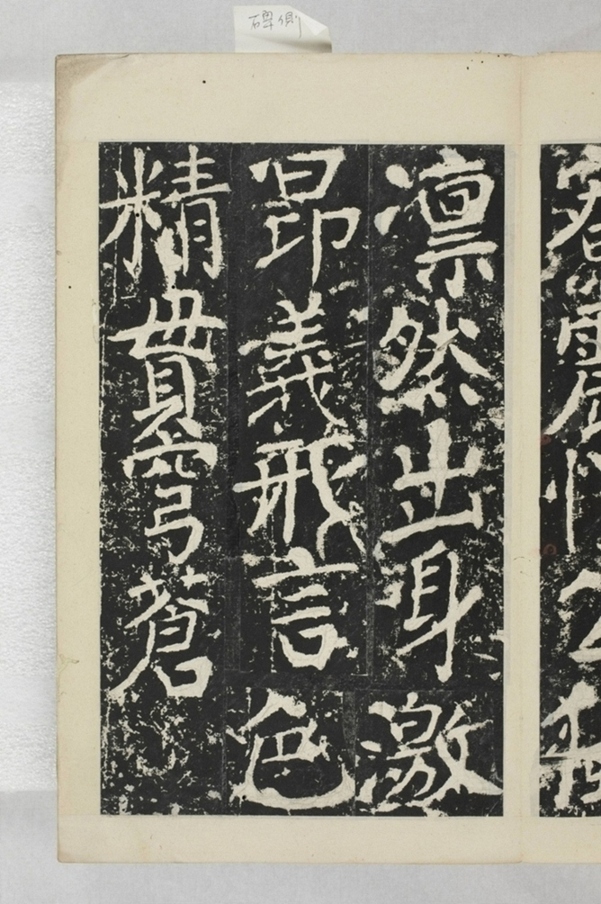 碑側
凛然出身激
昂義形言色
精貫穹蒼